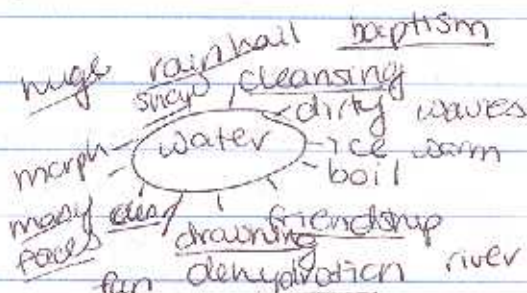 baptism
huge rain hail
snow cleansing
dirty waves
morph water ice warm
boil
many
faces friendship
drowning
fun dehydration river